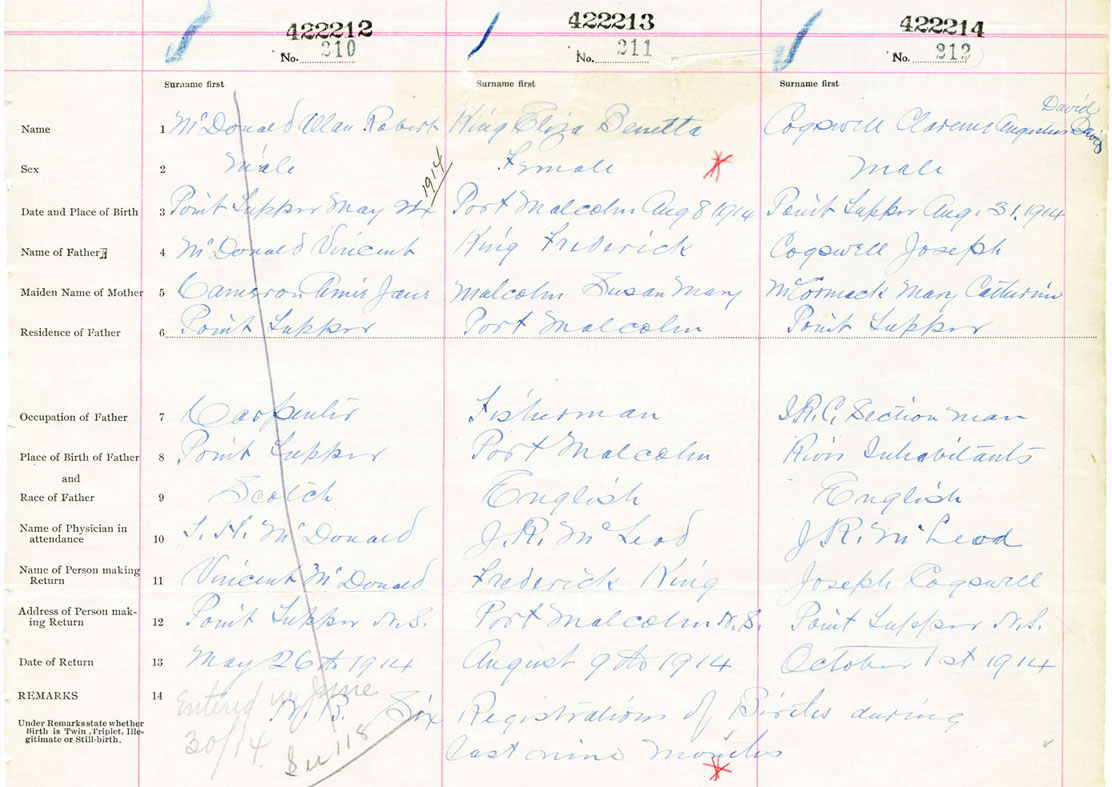 422212 422213 422214
No. 210 No. 211 No. 212
Surname first Surname first Surname first
David
Name 1 McDonald Allan Robert King Eliza Benetta Cogswell Clarence Augustus David
Sex 2 Male Female Male
1914
Date and Place of Birth 3 Point Tupper May Port Malcolm Aug 8 1914 Point Tupper Aug. 31. 1914
Name of Father 4 McDonald Vincent King Frederick Cogswell Joseph
Maiden Name of Mother 5 Cameron Annie Jane Malcolm Susan Mary McCormack Mary Catherine
Residence of Father 6 Point Tupper Port Malcolm Point Tupper
Occupation of Father 7 Carpenter Fisherman I.R.C. Section man
Place of Birth of Father 8 Point Tupper Port Malcolm River Inhabitants
and
Race of Father 9 Scotch English English
Name of Physician in
attendance 10 McDonald J.R. McLeod J.R. McLeod
Name of Person making
Return 11 Vincent McDonald Frederick King Joseph Cogswell
Address of Person mak-
ing Return 12 Point Tupper N.S. Port Malcolm N.S. Point Tupper N.S.
Date of Return 13 May 26th 1914 August 9th 1914 October 1st 1914
REMARKS 14
Under Remarks state whether
Birth is Twin, Triplet, Ille-
gitimate or Still-birth.
Entered in June
30/14.
See 118
N.B. Six Registrations of Births during
last nine months